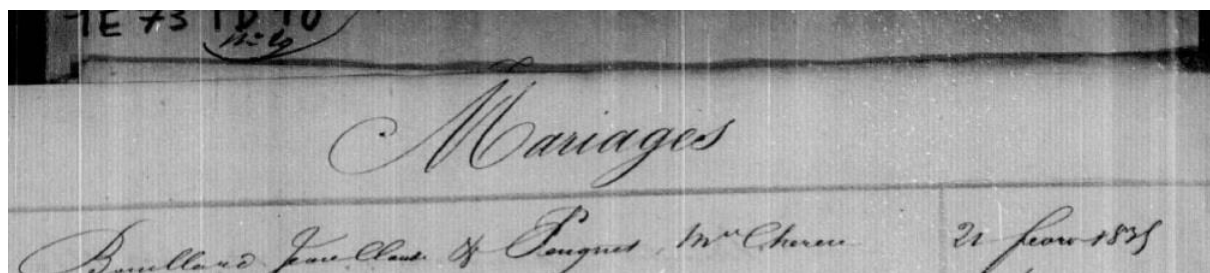 1E 73 TD 10
n° 4
Mariages
Bouillard Jean Claude & Pouguet Mie Therese 21 fevrier 1835